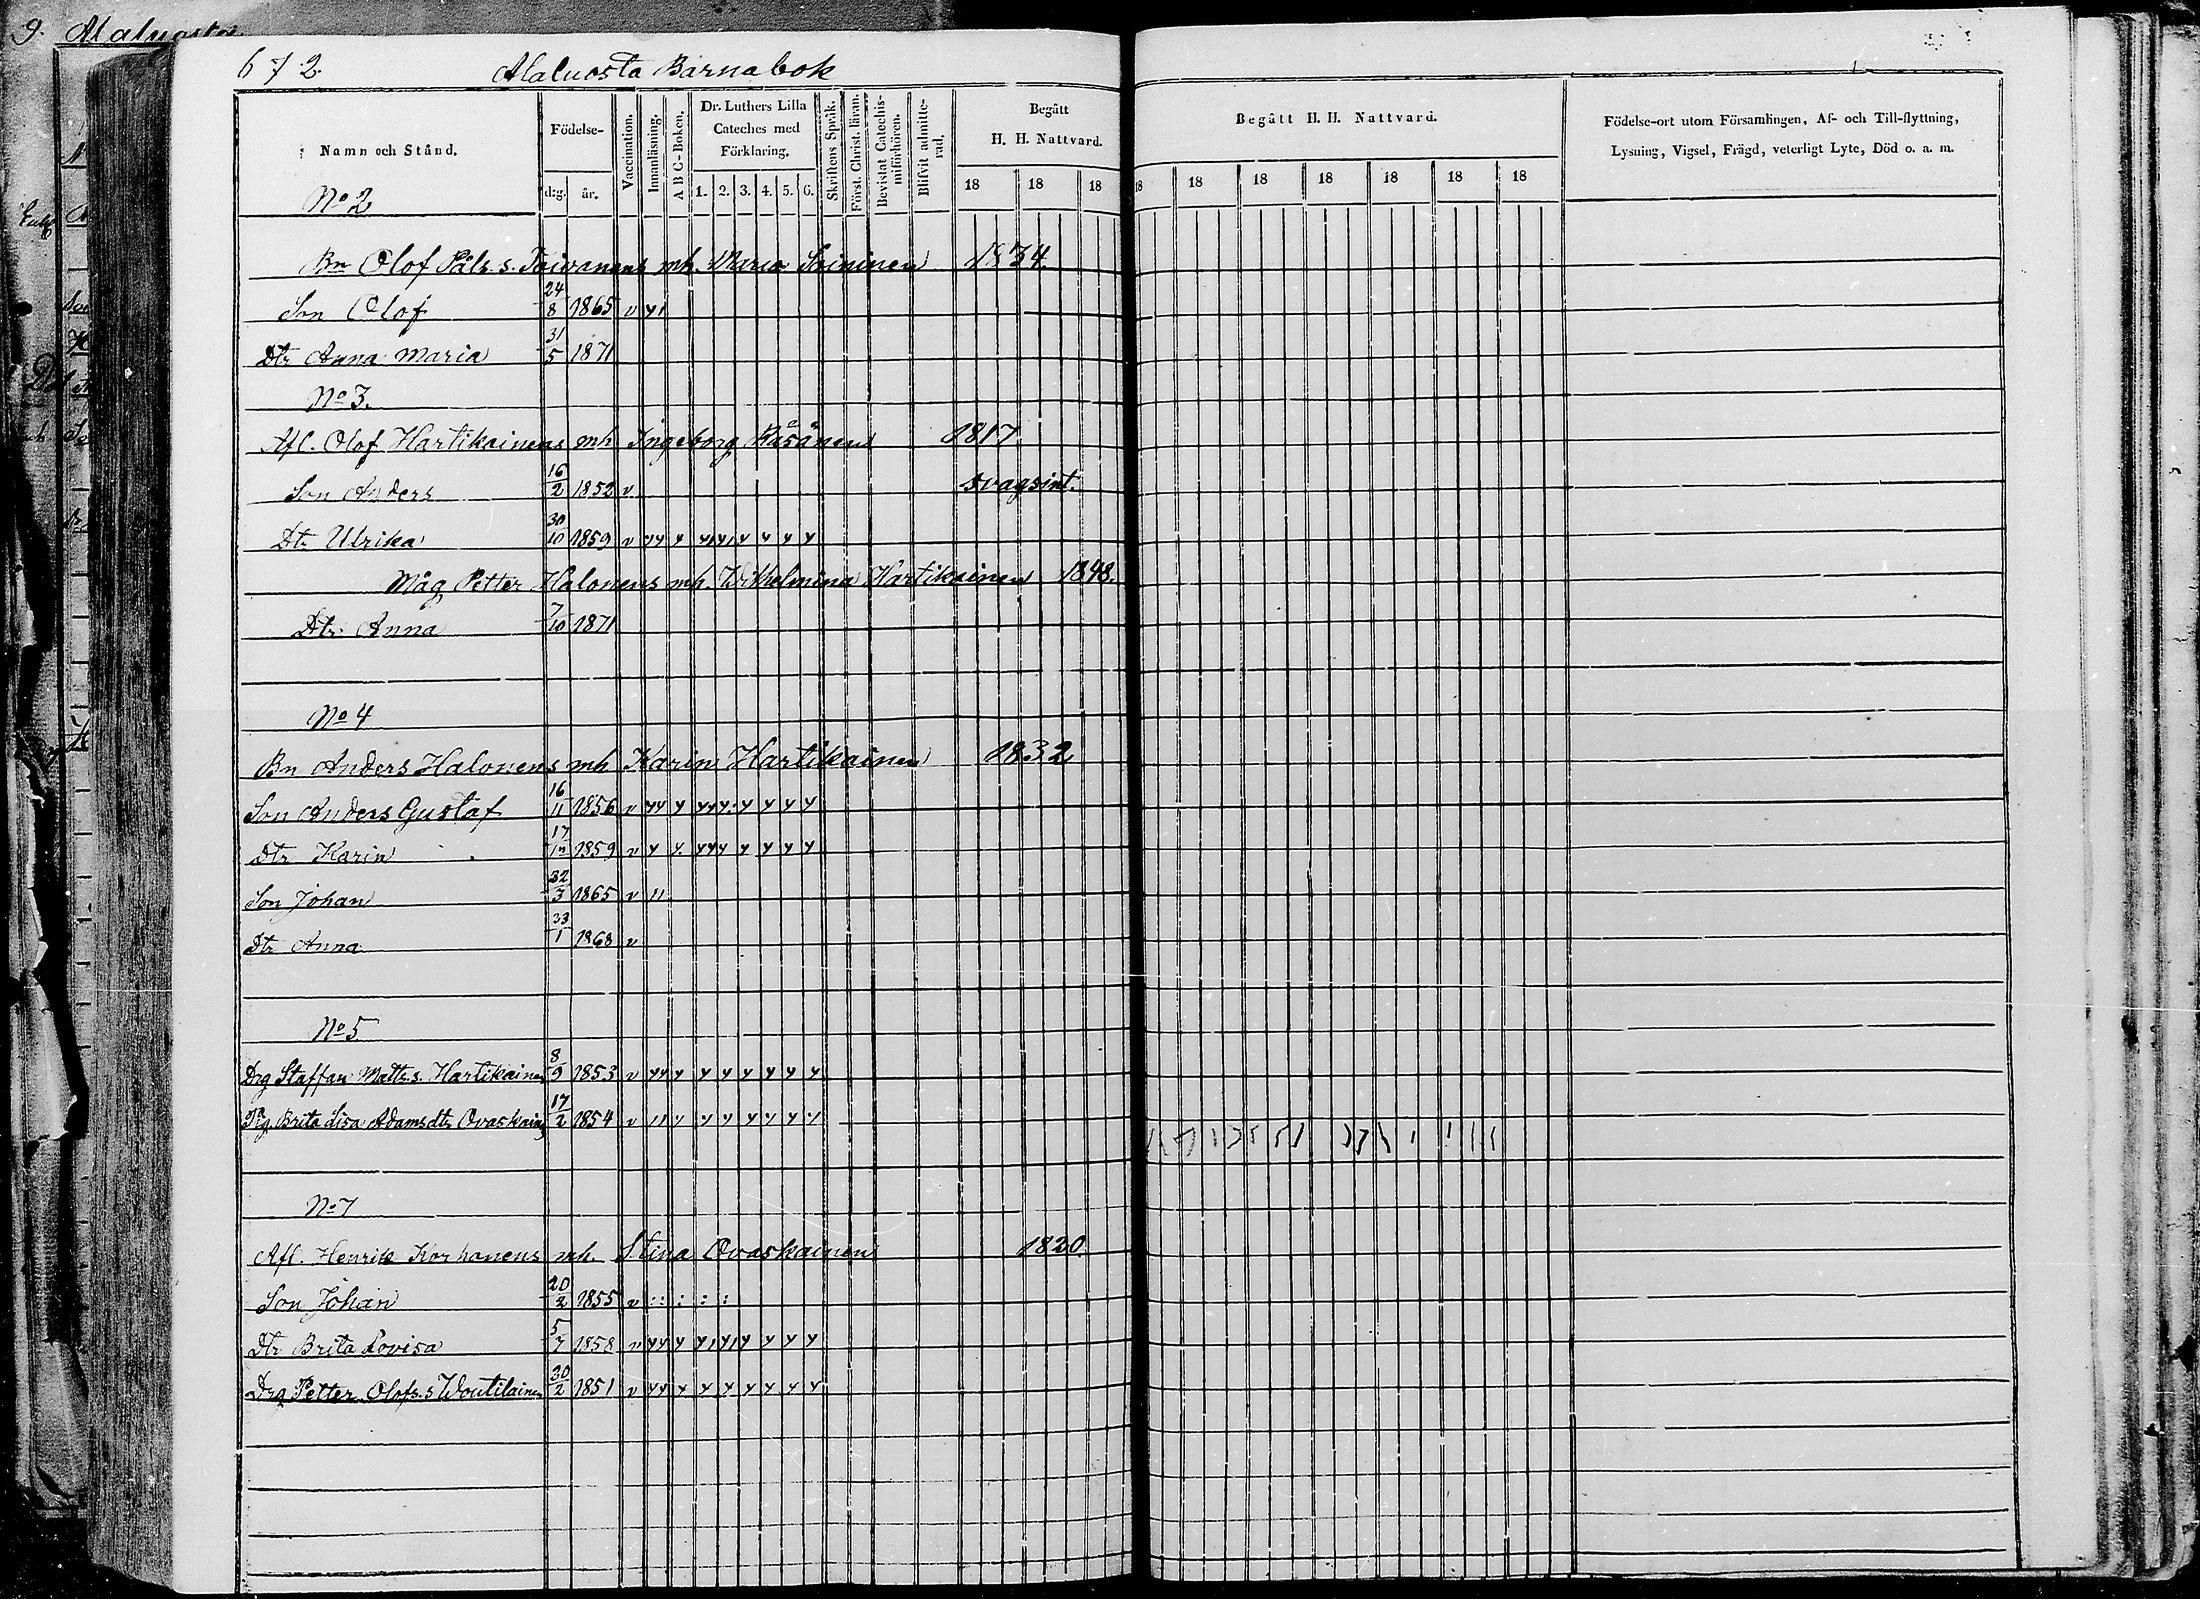 9. Maluosta
672. Maluosta Barnabok
Namn och Stånd.
Födelse-
dag. år.
Vaccination.
Innanläsning.
A B C-Boken.
Dr. Luthers Lilla Cateches med Förklaring.
1. 2. 3. 4. 5. 6.
Skriftens Språk.
Först. Christ. läran.
Bevistat Catechismiförhören.
Blifvit admitterad.
Begått H. H. Nattvard.
18 18 18
Begått H. H. Nattvard.
18 18 18 18 18 18 18
Födelse-ort utom Församlingen, Af- och Till-flyttning,
Lysning, Vigsel, Frägd, veterligt Lyte, Död o. a. m.
No 2
Bn Olof Påls. s. Toivanens mh. Maria Soininen 1834.
Son Olof 24/8 1865 v
Dtr Anna Maria 31/5 1871
No 3.
Afl. Olof Hartikainens mh Ingeborg Räsänen 1817
Son Anders 16/2 1852 v svagsint.
Dtr Ulrika 30/10 1859 v
Måg Petter Halonens mh. Wilhelmina Hartikainen 1848.
Dtr. Anna 7/10 1871
No 4
Bn Anders Halonens mh Karin Hartikainen 1832
Son Anders Gustaf 16/11 1856 v
Dtr Karin 1859 v
Son Johan 1865 v
Dtr Anna 1868 v
No 5
Drg Staffan Matts. s. Hartikainen 8/9 1853 v
Pig. Brita Lisa Adamsdtr Ovaskain 17/2 1854 v
No 7
Afl. Henrik Korhonens mh. Stina Ovaskainen 1820.
Son Johan 20/2 1855 v
Dtr Brita Lovisa 5/7 1858 v
Drg Petter Olofs. s Woutilainen 1851 v